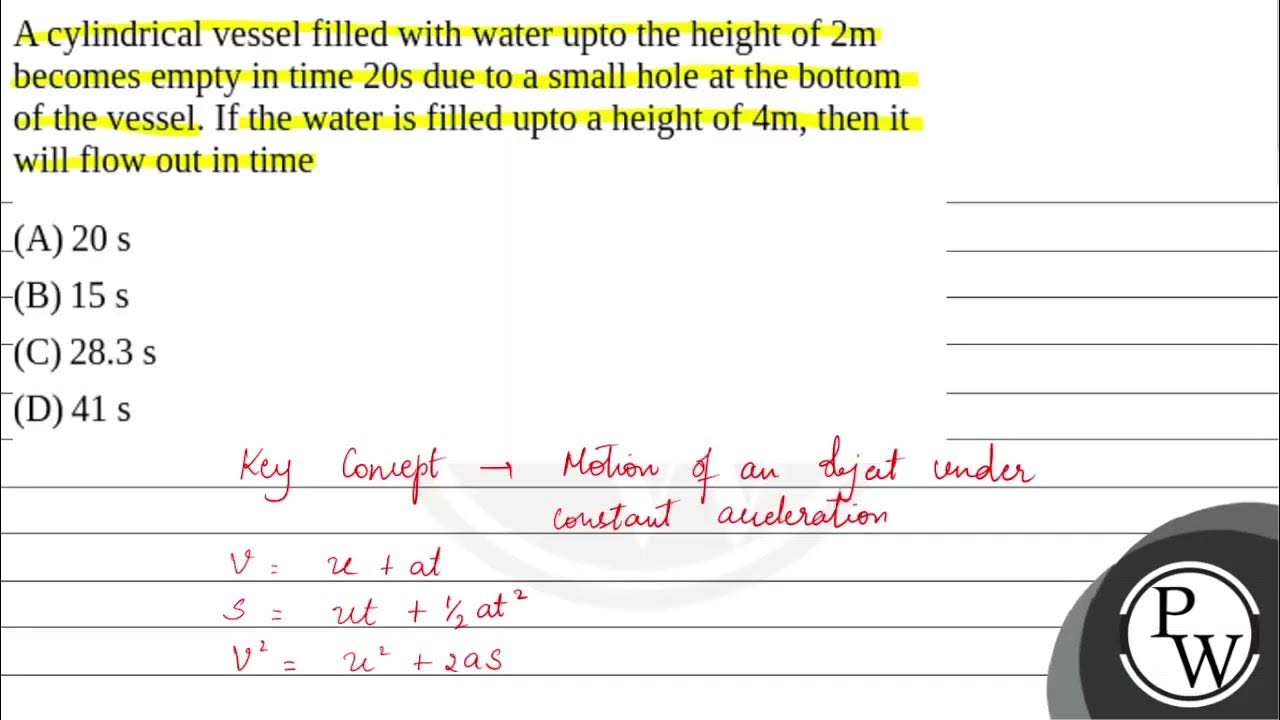 A cylindrical vessel filled with water upto the height of 2m
becomes empty in time 20s due to a small hole at the bottom
of the vessel. If the water is filled upto a height of 4m, then it
will flow out in time
(A) 20 s
(B) 15 s
(C) 28.3 s
(D) 41 s
Key Concept → Motion of an object under
constant acceleration
V = u + at
S = ut + ½ at²
V² = u² + 2as
P
W